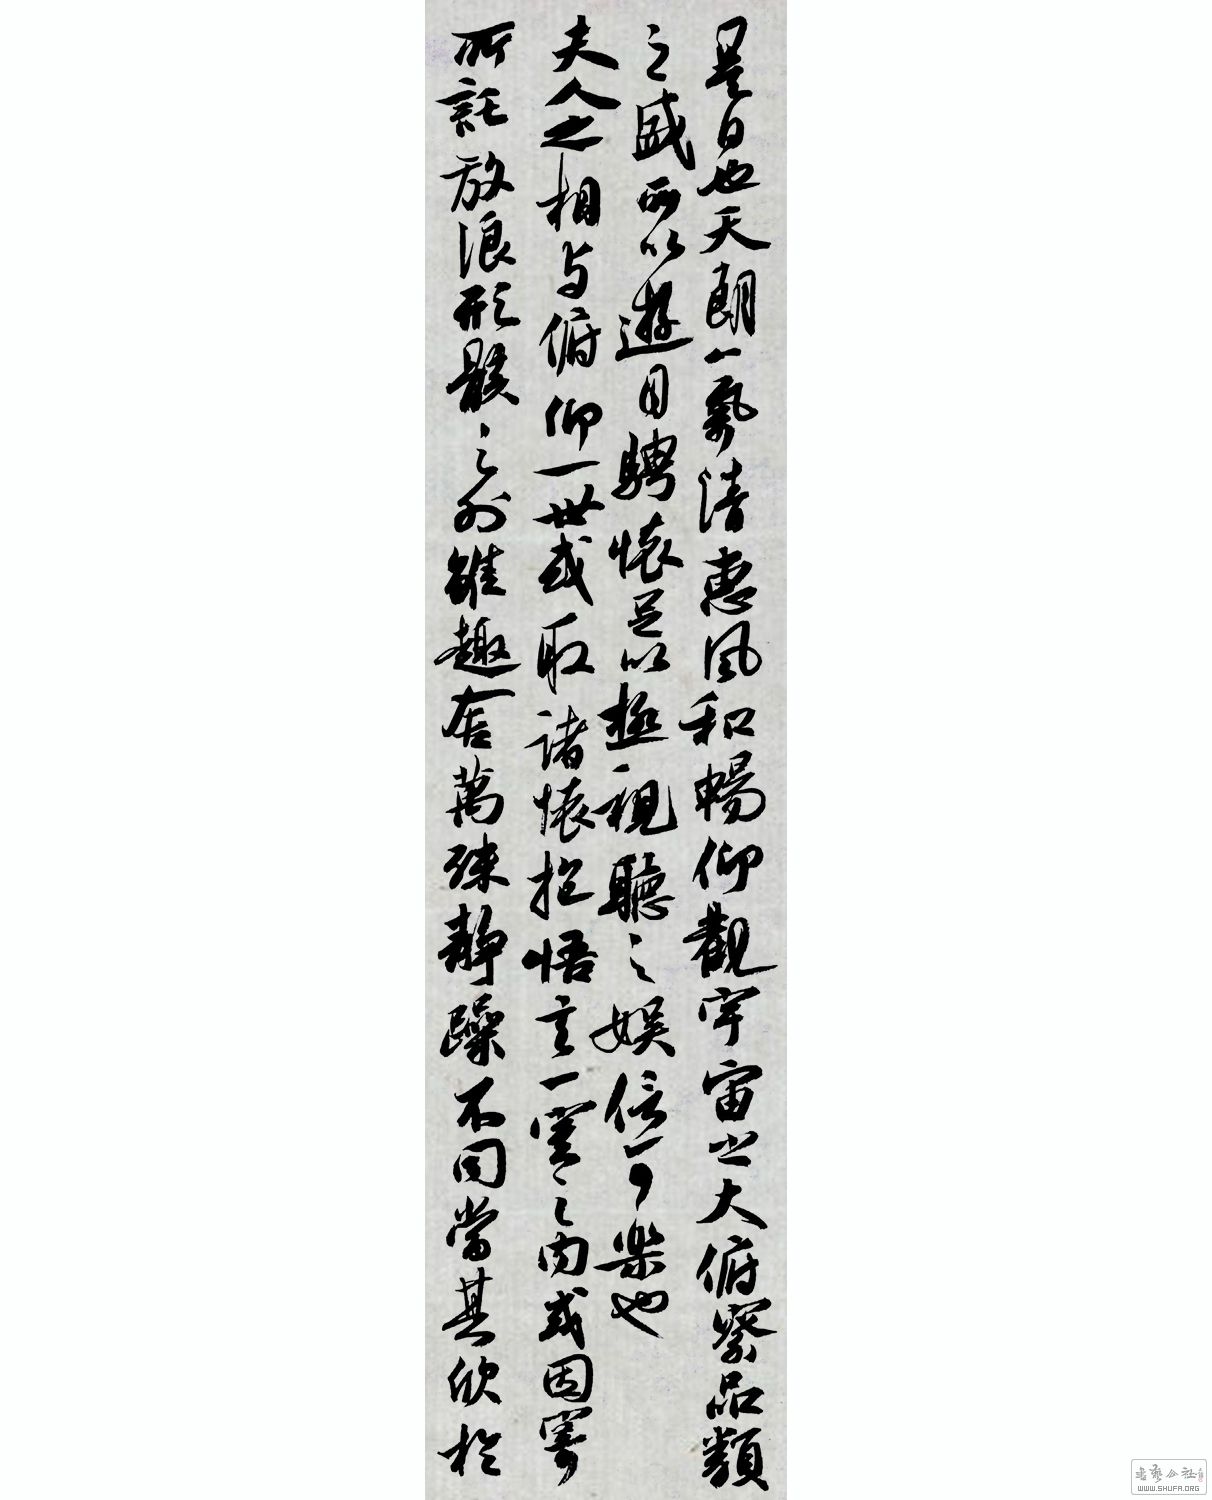 是日也天朗氣清惠風和暢仰觀宇宙之大俯察品類
之盛所以遊目騁懷足以極視聽之娛信可樂也
夫人之相與俯仰一世或取諸懷抱悟言一室之內或因寄
所託放浪形骸之外雖趣舍萬殊靜躁不同當其欣於
書藝公社
WWW.SHUFA.ORG